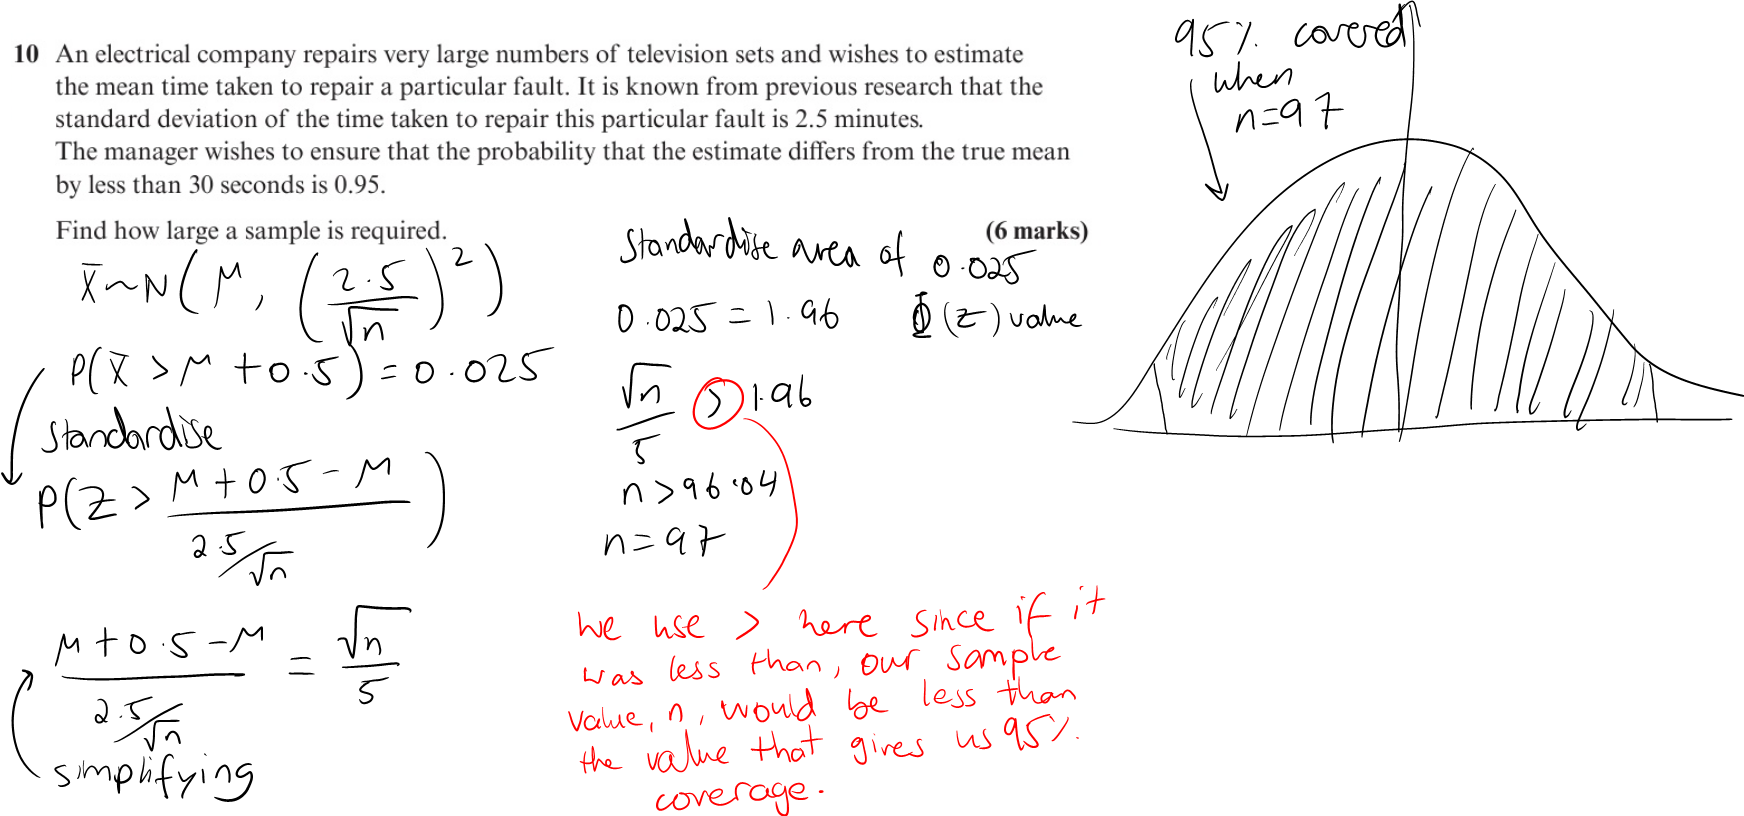 10 An electrical company repairs very large numbers of television sets and wishes to estimate
the mean time taken to repair a particular fault. It is known from previous research that the
standard deviation of the time taken to repair this particular fault is 2.5 minutes.
The manager wishes to ensure that the probability that the estimate differs from the true mean
by less than 30 seconds is 0.95.
Find how large a sample is required.
(6 marks)
X̄~N(μ, (2.5/√n)²)
P(X̄ > μ + 0.5) = 0.025
Standardise
P(Z > (μ + 0.5 - μ)/(2.5/√n))
(μ + 0.5 - μ)/(2.5/√n) = √n/5
simplifying
Standardise area of 0.025
0.025 = 1.96 Φ(z) value
√n/5 > 1.96
n > 96.04
n = 97
We use > here since if it
was less than, our sample
value, n, would be less than
the value that gives us 95%
coverage.
95% covered
when
n=97